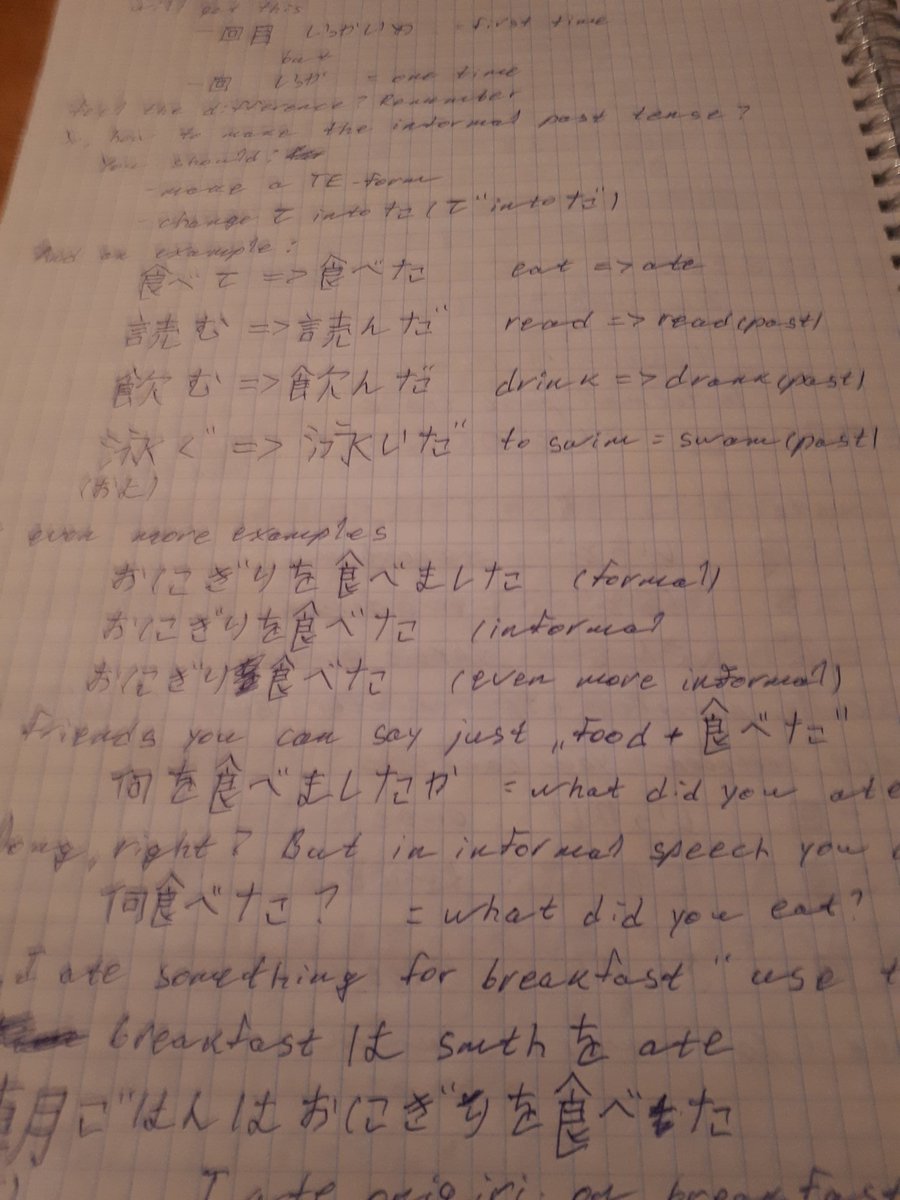 get this
一回目 いっかいめ = first time
but
一回 = one time
the difference? Remember
how to make the informal past tense?
You should:
- make a TE-form
- change て into た (で into だ)
an example:
食べて => 食べた eat => ate
読む => 読んだ read => read (past)
飲む => 飲んだ drink => drank (past)
泳ぐ => 泳いだ to swim = swam (past)
(およ)
even more examples
おにぎりを食べました (formal)
おにぎりを食べた (informal
おにぎり食べた (even more informal)
friends you can say just „food + 食べた"
何を食べましたか = what did you ate
long, right? But in informal speech you
何食べた? = what did you eat?
I ate something for breakfast" use
breakfast は smth を ate
朝ごはんはおにぎりを食べた
I ate onigiri on breakfast